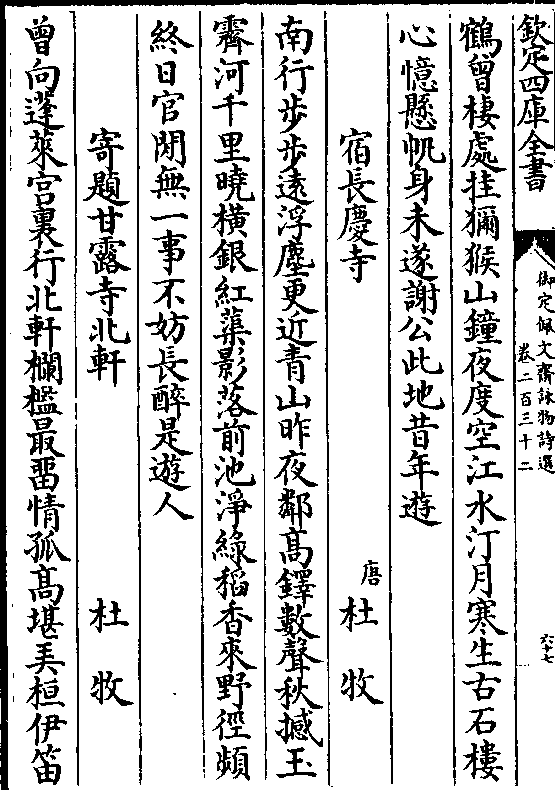 欽定四庫全書
御定佩文齋詠物詩選
卷二百三十二
六十七
鶴曾棲處挂獼猴山鐘夜度空江水汀月寒生古石樓
心憶懸帆身未遂謝公此地昔年遊
宿長慶寺
唐 杜牧
南行步步遠浮塵更近青山昨夜鄰高鐸數聲秋撼玉
霽河千里曉橫銀紅蕖影落前池淨綠稻香來野徑頻
終日官閒無一事不妨長醉是遊人
寄題甘露寺北軒
杜牧
曾向蓬萊宮裏行北軒欄檻最畱情孤高堪弄桓伊笛